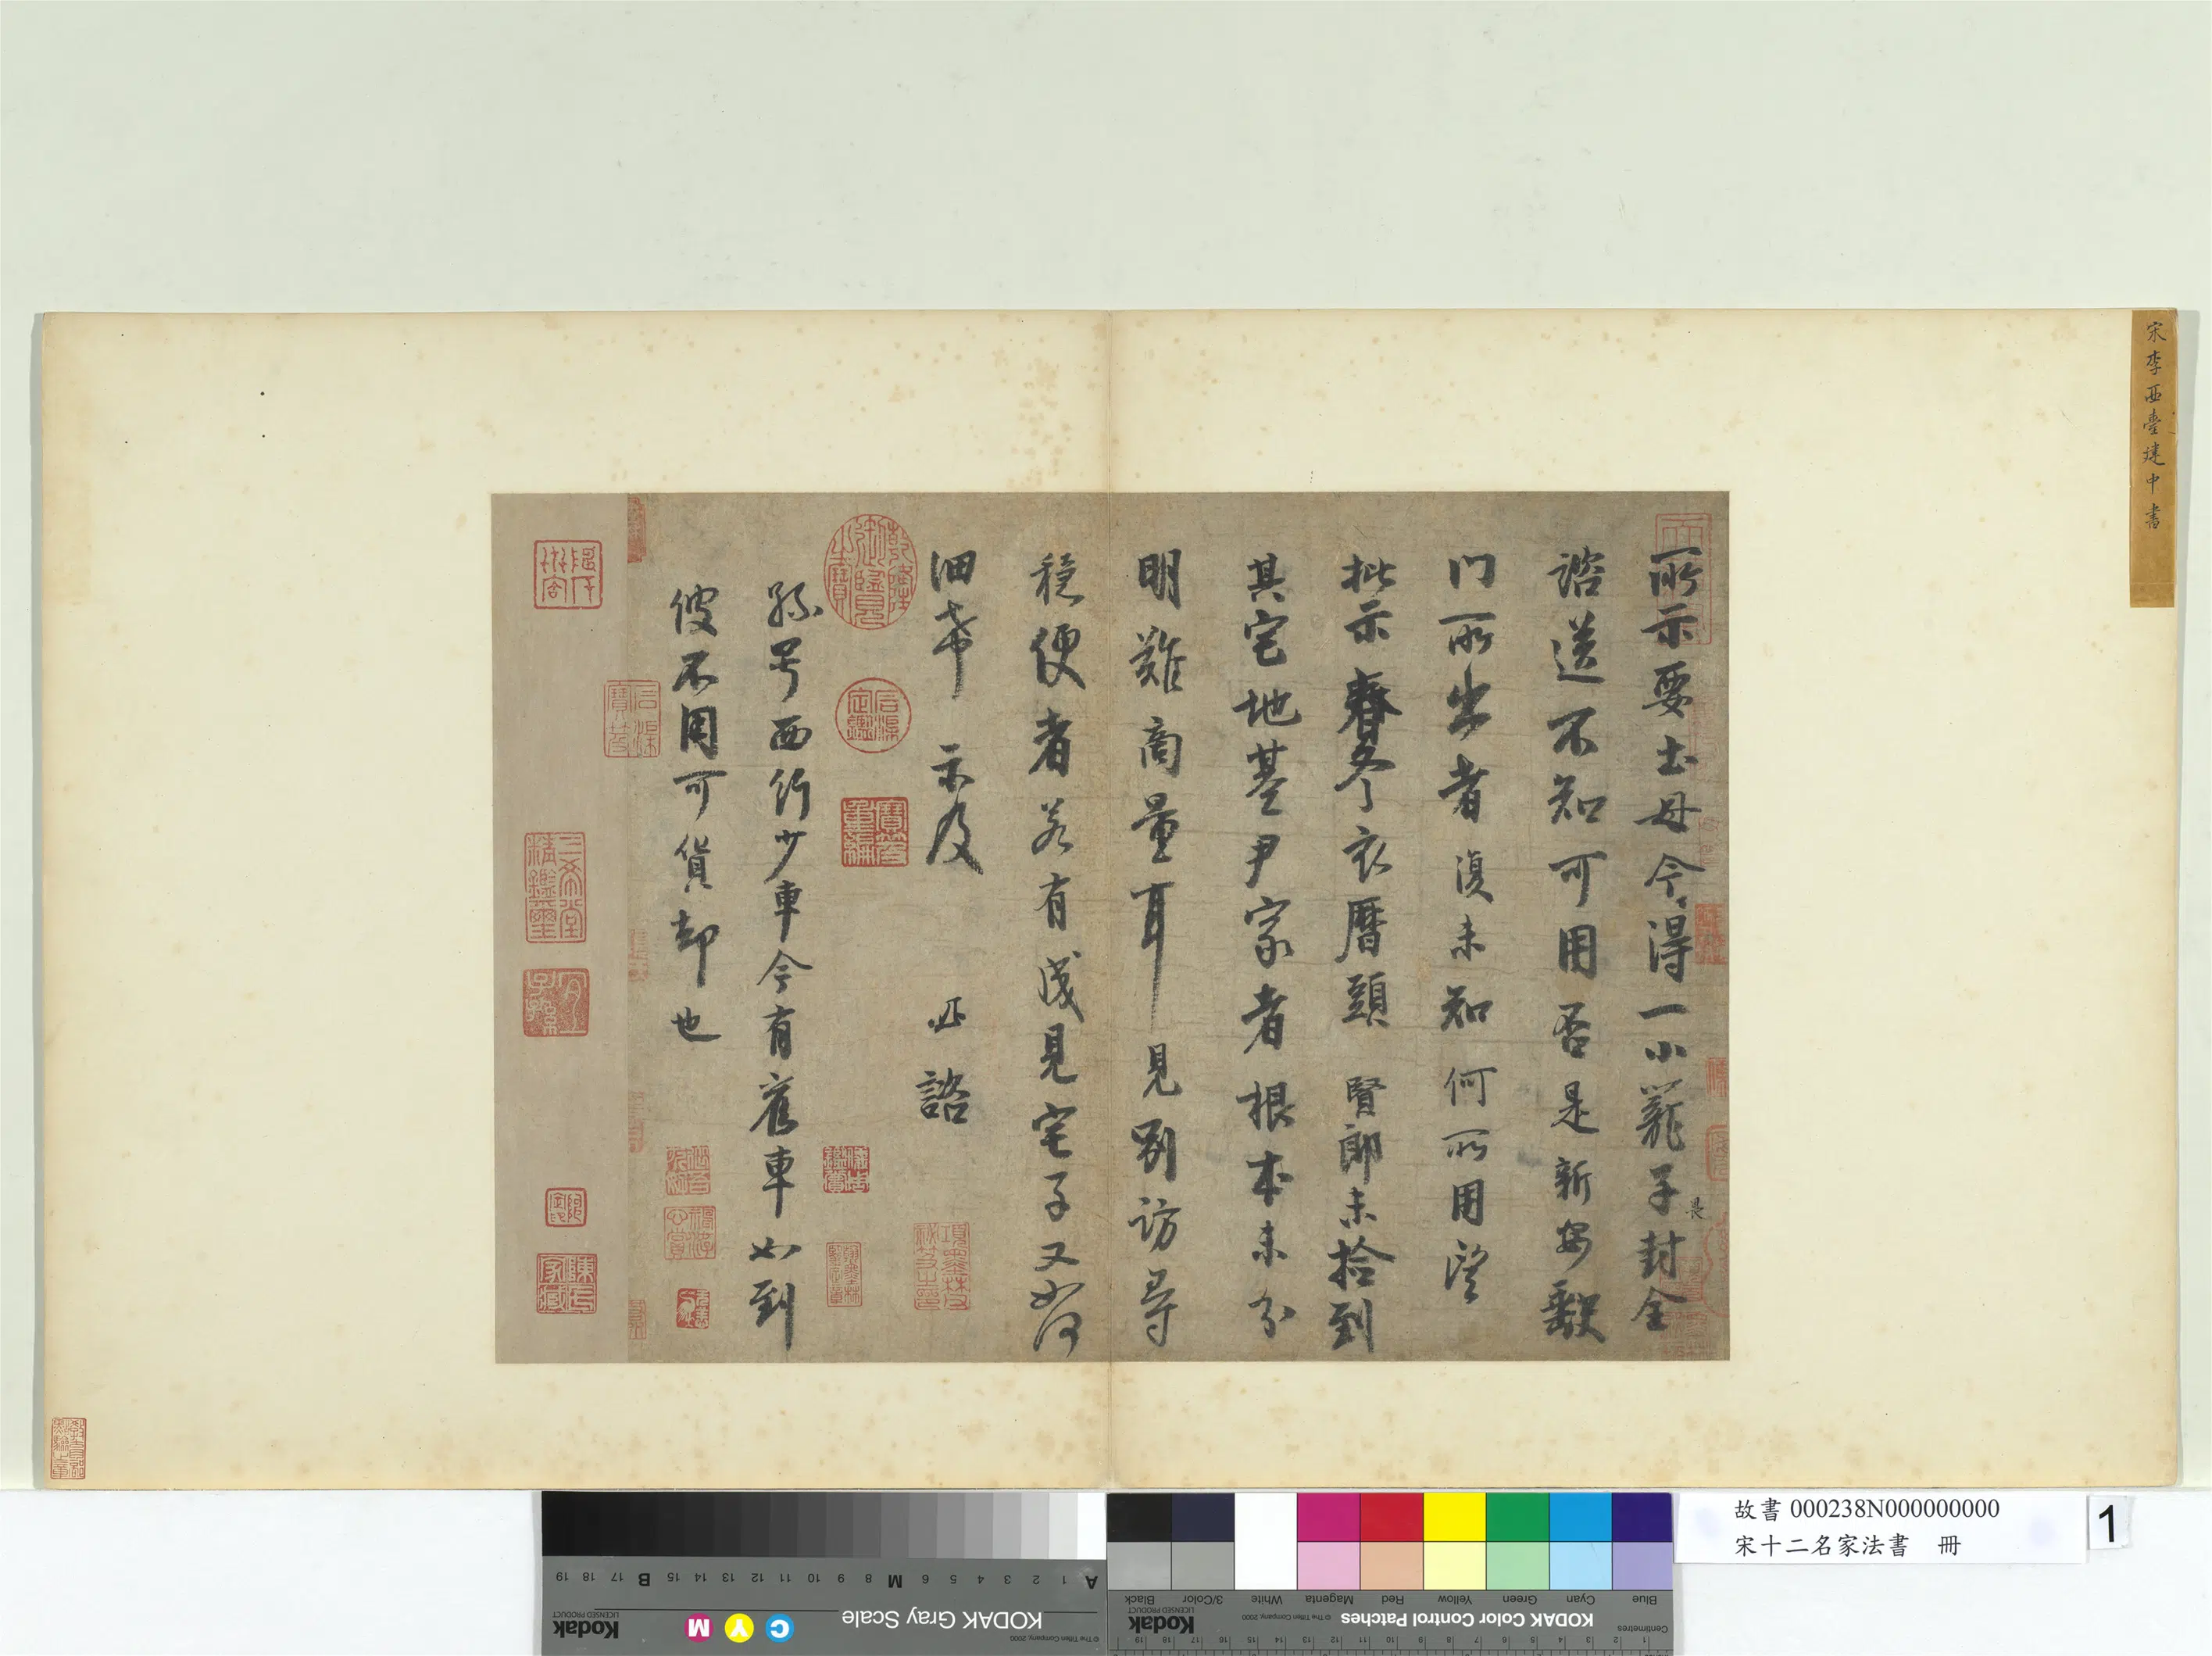 宋李西臺建中書
所示要土母今得一小籠子封全
諮送不知可用否是新安缺
門所出者復未知何所用望
批示春冬衣曆頭 賢郎未拾到
其宅地基尹家者根本未分
明難商量耳見別訪尋
穩便者若有成見宅子又如何
細希 示及 西 諮
孫号西行少車今有舊車如到
彼不用可貨却也
故書 000238N000000000
宋十二名家法書 冊
1
KODAK Gray Scale
Kodak
LICENSED PRODUCT
C Y M
© The Tiffen Company, 2000
A 1 2 3 4 5 6 M 8 9 10 11 12 13 14 15 B 17 18 19
KODAK Color Control Patches
Kodak
LICENSED PRODUCT
© The Tiffen Company, 2000
Blue Cyan Green Yellow Red Magenta White 3/Color Black
Centimetres